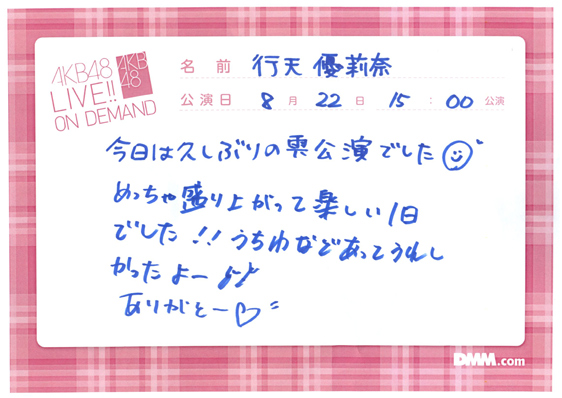 AKB48
LIVE!!
ON DEMAND
AKB
48
名前 行天 優莉奈
公演日 8月 22日 15:00 公演
今日は久しぶりの雫公演でした
めっちゃ盛り上がって楽しい1日
でした!!うちわなどあってうれし
かったよー
ありがとー♡
DMM.com